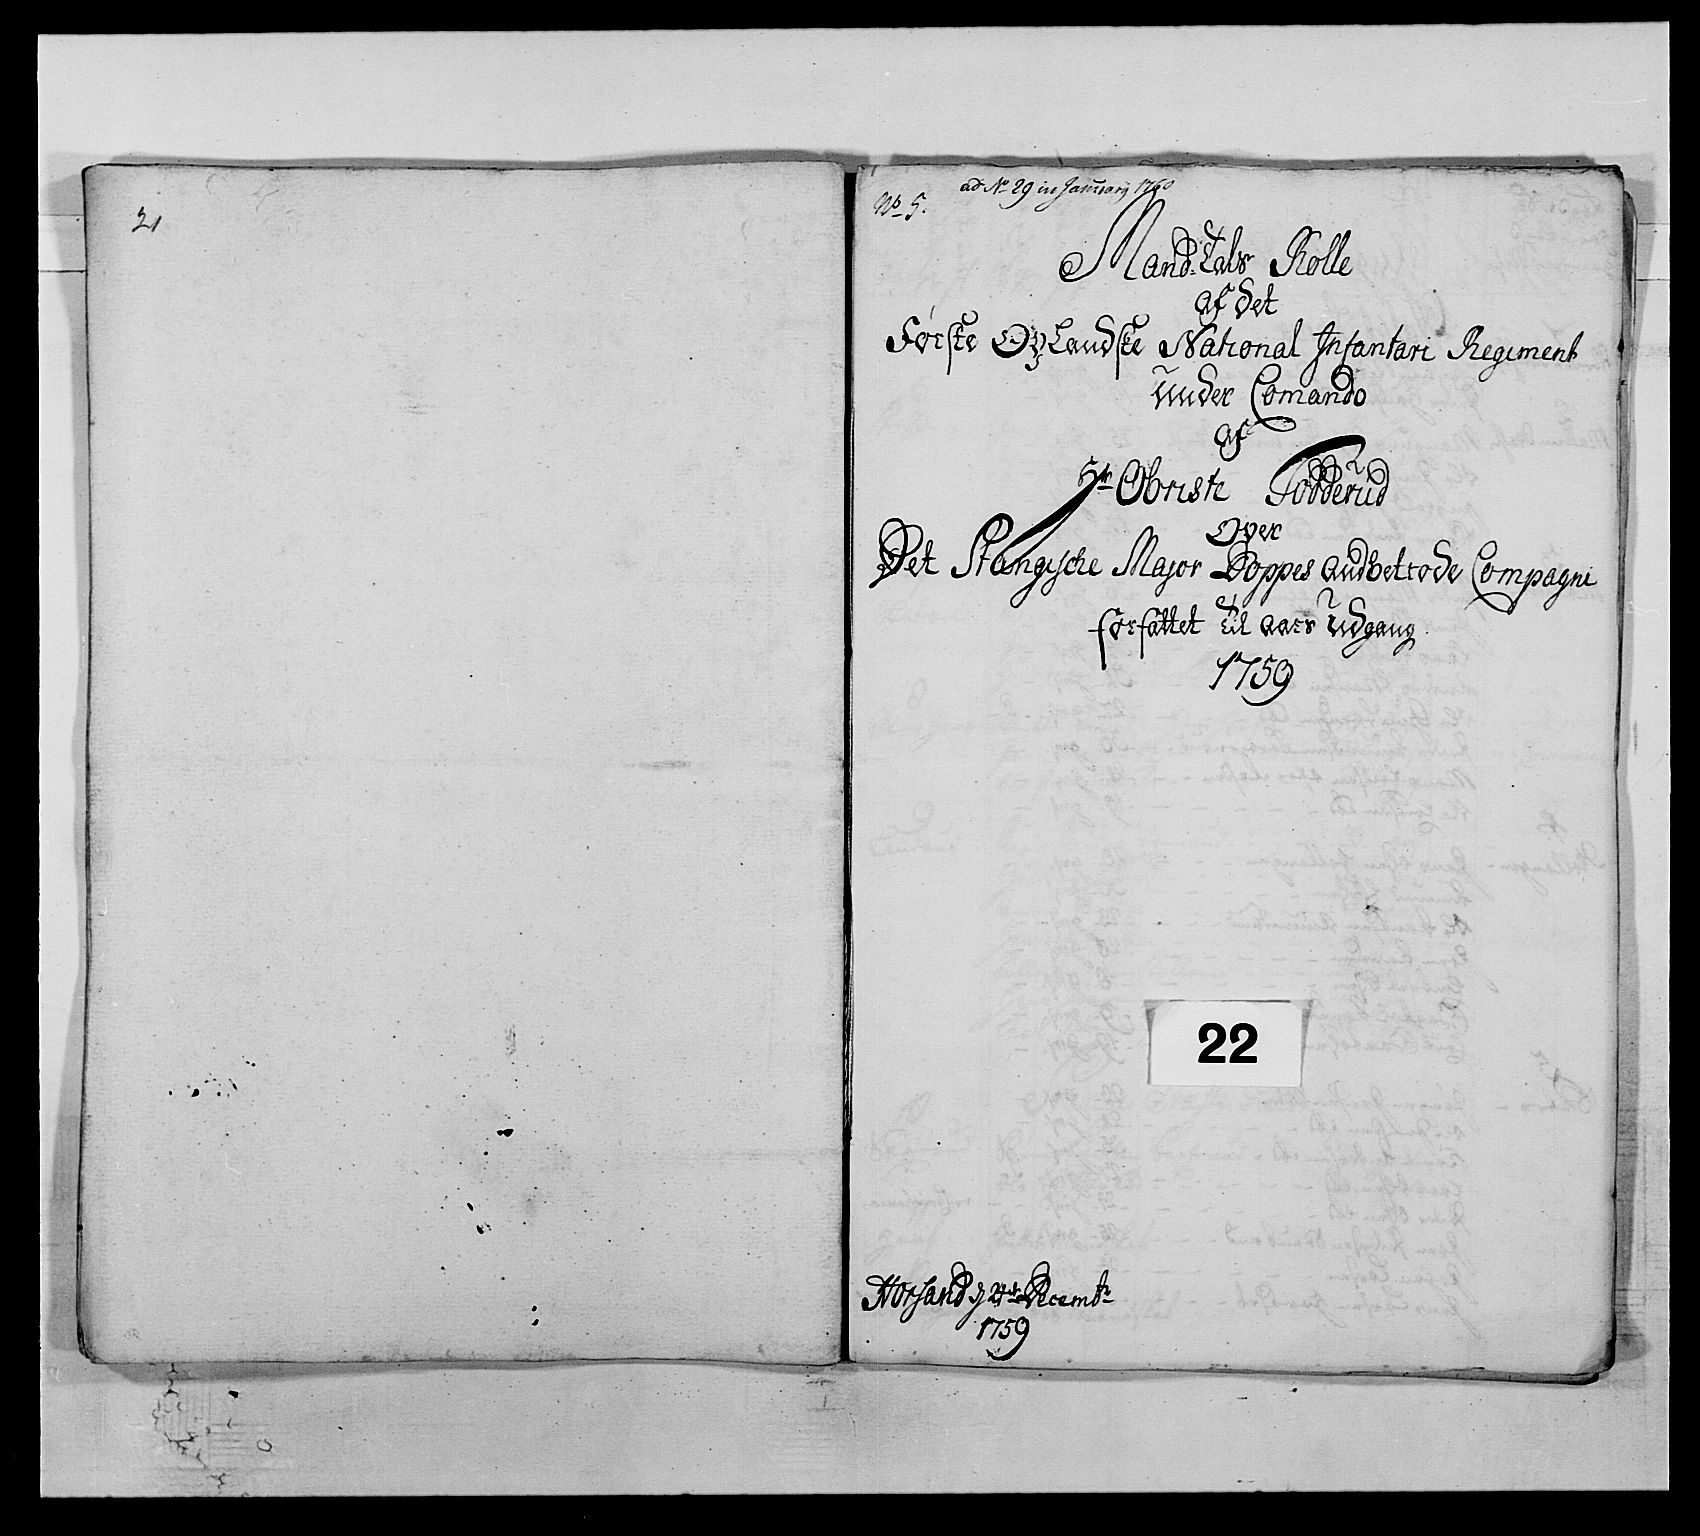 21
ad No 29 in January 1760
No 5.
Mand-Tals Rolle
af det
Første Oplandske National Infantari Regiment
under Comando
af
Hr Obriste Todderud
Over
Det Stangische Major Poppes andbetrode Compagni
forfattet til aars udgang
1759
22
Horsand d 24de Decembr
1759